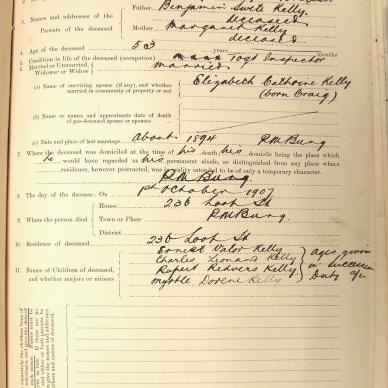 Father Benjamin Swits Kelly
3. Names and addresses of the
Parents of the deceased
deceased
Mother Margaret Kelly
deceased
4. Age of the deceased 50 years months
5. Condition in life of the deceased (occupation) Inspector
6. Married or Unmarried, married
Widower or Widow
(a) Name of surviving spouse (if any), and whether
married in community of property or not
Elizabeth Catherine Kelly
(born Craig)
(b) Name or names and approximate date of death
of pre-deceased spouse or spouses
(c) Date and place of last marriage About 1894 P M Burg
7. Where the deceased was domiciled at the time of his death, his domicile being the place which
he would have regarded as his permanent abode, as distinguished from any place where
residence, however protracted, was in reality intended to be only of a temporary character.
P M Burg
8. The day of the decease: On 1st October 1907
House 236 Loop St
9. Where the person died Town or Place P M Burg
District
10. Residence of deceased 236 Loop St
11. Names of Children of deceased,
and whether majors or minors
Ernest Kelly
Charles Leonard Kelly
Rupert Redvers Kelly
Myrtle Dorene Kelly
ages given
in Succession
Duty a/c